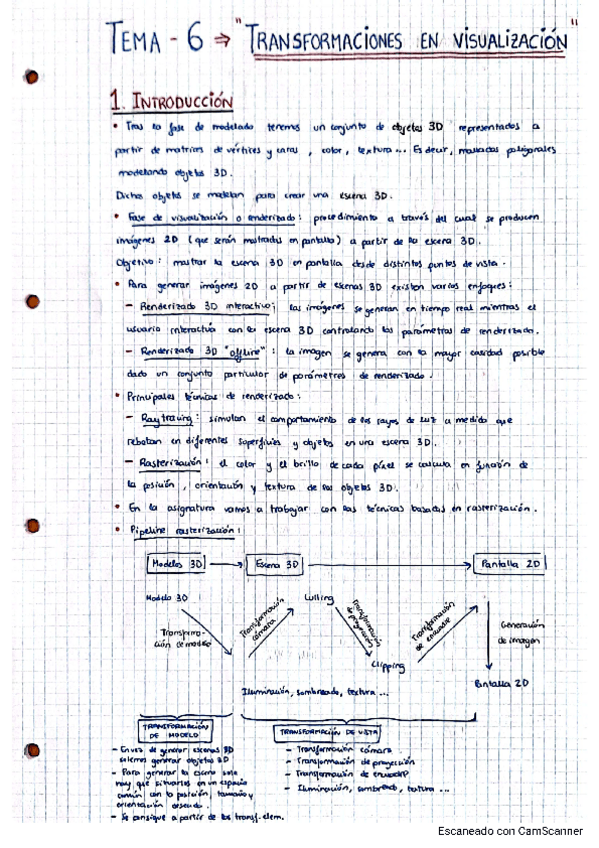 TEMA - 6 ⇒ "TRANSFORMACIONES EN VISUALIZACIÓN"
1. INTRODUCCIÓN
• Tras la fase de modelado tenemos un conjunto de objetos 3D representados a
partir de matrices de vértices y caras, color, textura... Es decir, mallados poligonales
modelando objetos 3D.
Dichos objetos se modelan para crear una escena 3D.
• Fase de visualización o renderizado: procedimiento a través del cual se producen
imágenes 2D (que serán mostradas en pantalla) a partir de la escena 3D.
Objetivo: mostrar la escena 3D en pantalla desde distintos puntos de vista.
• Para generar imágenes 2D a partir de escenas 3D existen varios enfoques:
- Renderizado 3D interactivo: las imágenes se generan en tiempo real mientras el
usuario interactúa con la escena 3D controlando los parámetros de renderizado.
- Renderizado 3D "offline": la imagen se genera con la mayor calidad posible
dado un conjunto particular de parámetros de renderizado.
• Principales técnicas de renderizado:
- Raytracing: simulan el comportamiento de los rayos de luz a medida que
rebotan en diferentes superficies y objetos en una escena 3D.
- Rasterización: el color y el brillo de cada píxel se calcula en función de
la posición, orientación y textura de los objetos 3D.
• En la asignatura vamos a trabajar con las técnicas basadas en rasterización.
• Pipeline rasterización:
Modelos 3D → Escena 3D → Pantalla 2D
Modelo 3D
Transformación de modelo
Transformación cámara
Culling
Transformación de proyección
Clipping
Transformación de encuadre
Generación de imagen
Pantalla 2D
Iluminación, sombreado, textura ...
TRANSFORMACIÓN
DE MODELO
- En vez de generar escenas 3D
solemos generar objetos 3D
- Para generar la escena solo
hay que situarlos en un espacio
común con la posición, tamaño y
orientación deseado.
- Se consigue a partir de las transf. elem.
TRANSFORMACIÓN DE VISTA
- Transformación cámara
- Transformación de proyección
- Transformación de encuadre
- Iluminación, sombreado, textura ...
Escaneado con CamScanner